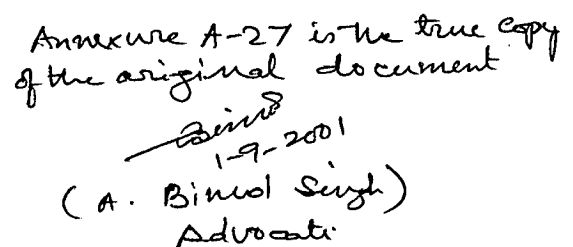 Annexure A-27 is the true copy
of the original document
1-9-2001
(A. Binod Singh)
Advocate